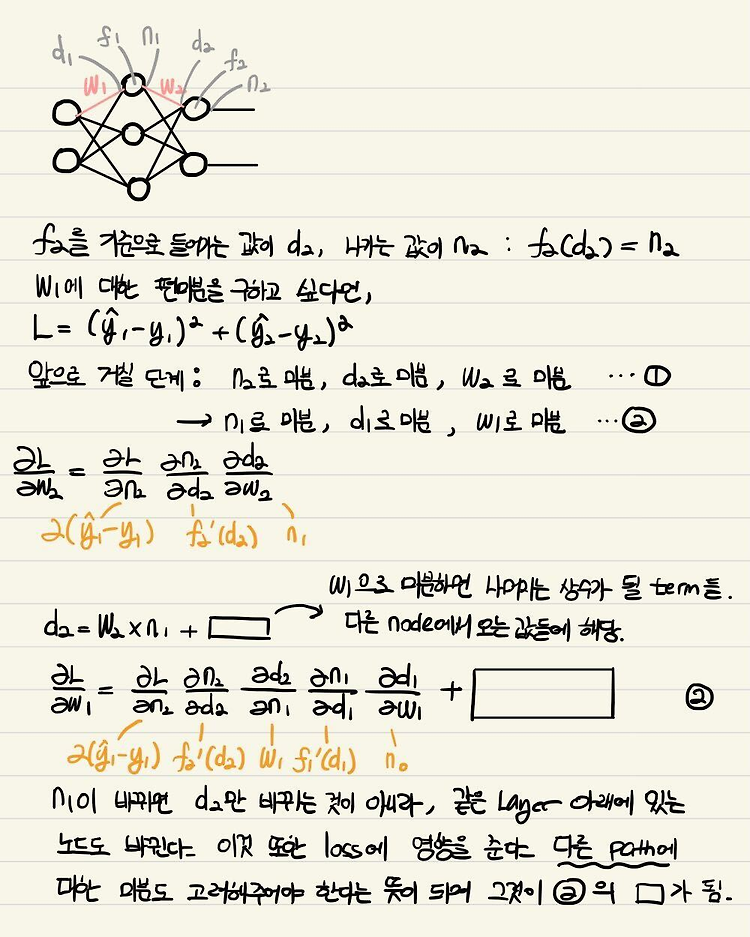 d₁ f₁ n₁ d₂ f₂ n₂
w₁ w₂
f₂를 기준으로 들어가는 값이 d₂, 나가는 값이 n₂ : f₂(d₂) = n₂
W₁에 대한 편미분을 구하고 싶다면,
L = (ŷ₁-y₁)² + (ŷ₂-y₂)²
앞으로 거칠 단계 : n₂로 미분, d₂로 미분, w₂로 미분 ··· ①
→ n₁로 미분, d₁로 미분, w₁로 미분 ··· ②
∂L/∂w₂ = ∂L/∂n₂ ∂n₂/∂d₂ ∂d₂/∂w₂
2(ŷ₁-y₁) f₂'(d₂) n₁
w₁으로 미분하면 나머지는 상수가 될 term들.
d₂ = w₂ × n₁ + □ → 다른 node에서 오는 값들에 해당.
∂L/∂w₁ = ∂L/∂n₂ ∂n₂/∂d₂ ∂d₂/∂n₁ ∂n₁/∂d₁ ∂d₁/∂w₁ + □ ②
2(ŷ₁-y₁) f₂'(d₂) w₁ f₁'(d₁) n₀
n₁이 바뀌면 d₂만 바뀌는 것이 아니라, 같은 layer 아래에 있는
노드도 바뀐다. 이것 또한 loss에 영향을 준다. 다른 path에
대한 미분도 고려해주어야 한다는 뜻이 되며 그것이 ②의 □가 됨.